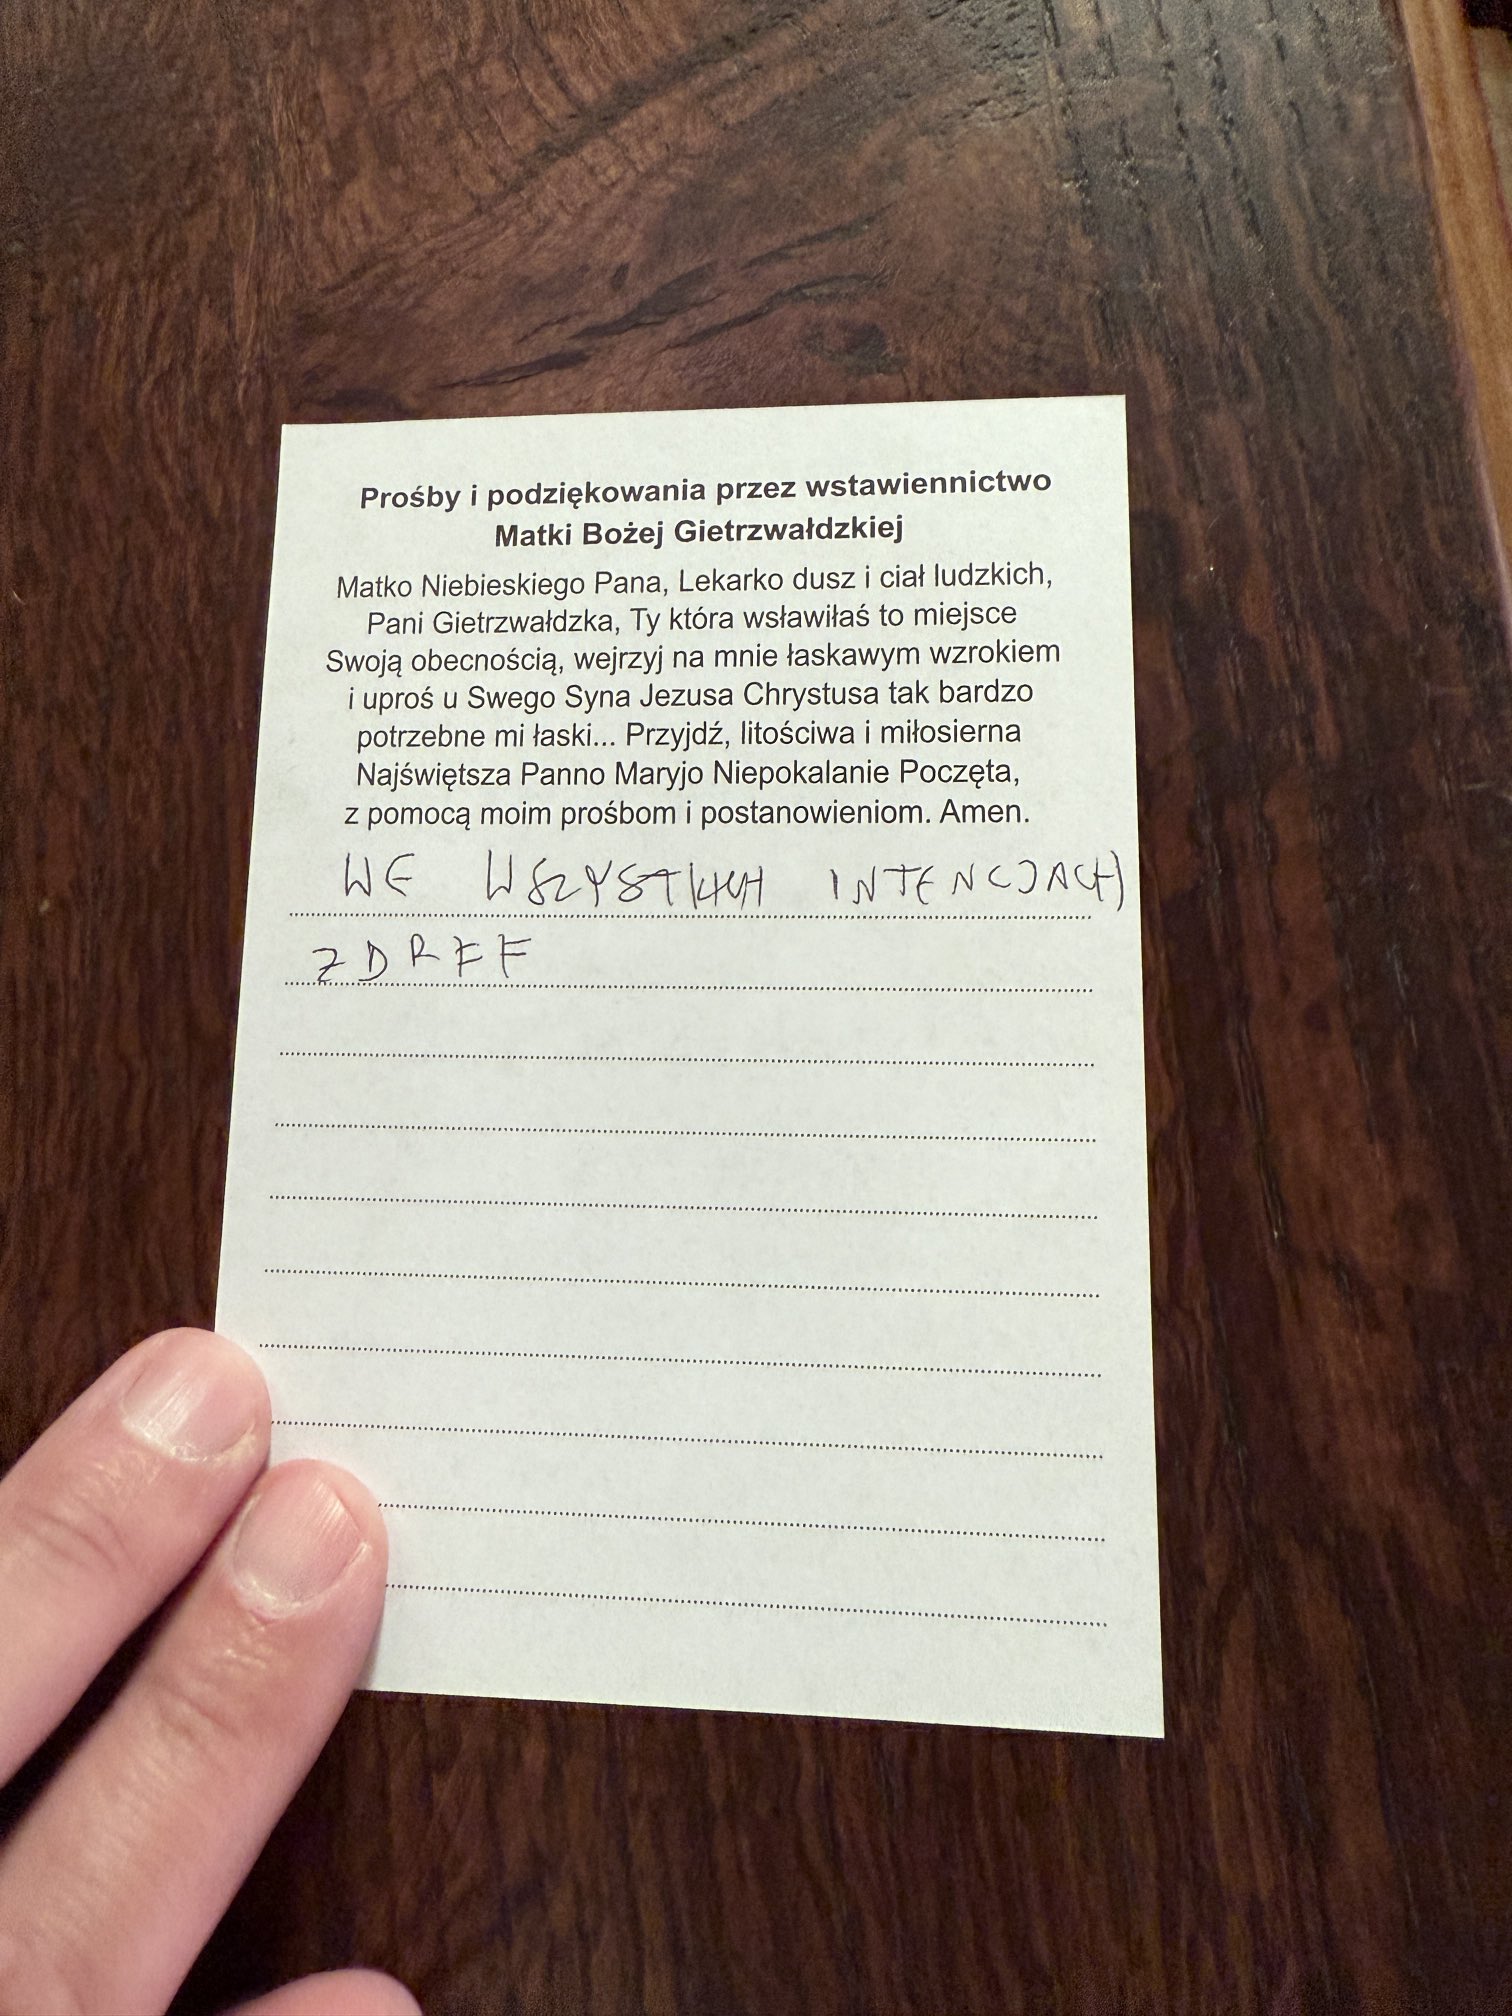 Prośby i podziękowania przez wstawiennictwo
Matki Bożej Gietrzwałdzkiej
Matko Niebieskiego Pana, Lekarko dusz i ciał ludzkich,
Pani Gietrzwałdzka, Ty która wsławiłaś to miejsce
Swoją obecnością, wejrzyj na mnie łaskawym wzrokiem
i uproś u Swego Syna Jezusa Chrystusa tak bardzo
potrzebne mi łaski... Przyjdź, litościwa i miłosierna
Najświętsza Panno Maryjo Niepokalanie Poczęta,
z pomocą moim prośbom i postanowieniom. Amen.
WE WSZYSTKICH INTENCJACH
ZDRFF